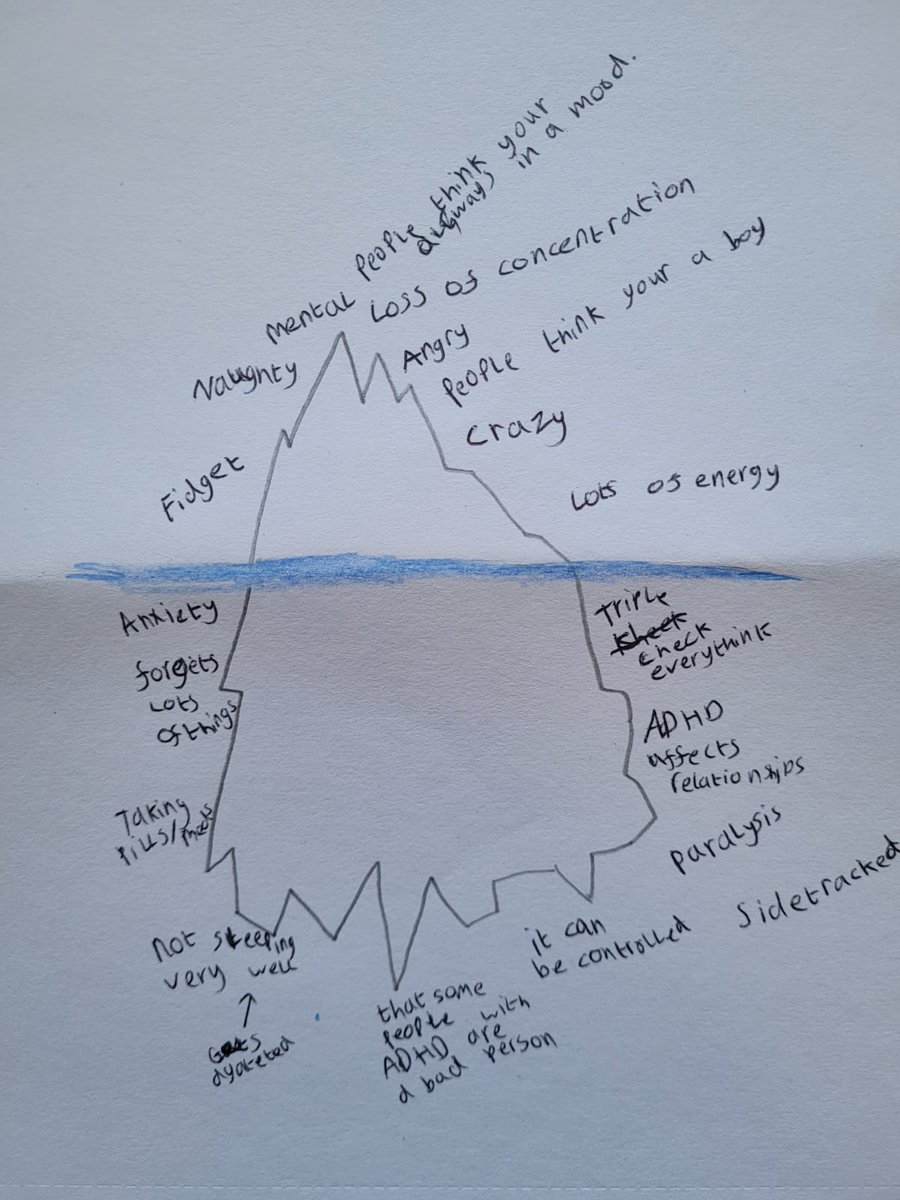 People think your
always in a mood.
mental
Loss of concentration
Naughty
Angry
People think your a boy
Crazy
Fidget
Lots of energy
Anxiety
Triple
check
everythink
forgets
Lots
of things
ADHD
affects
relationships
Taking
Pills/meds
paralysis
Sidetracked
not sleeping
very well
it can
be controlled
that some
people with
ADHD are
a bad person
Gets
agateted